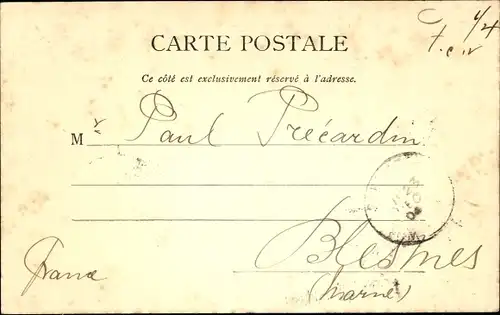 CARTE POSTALE
Ce côté est exclusivement réservé à l'adresse.
Mr Paul Précardin
Blesmes
France
(Marne)